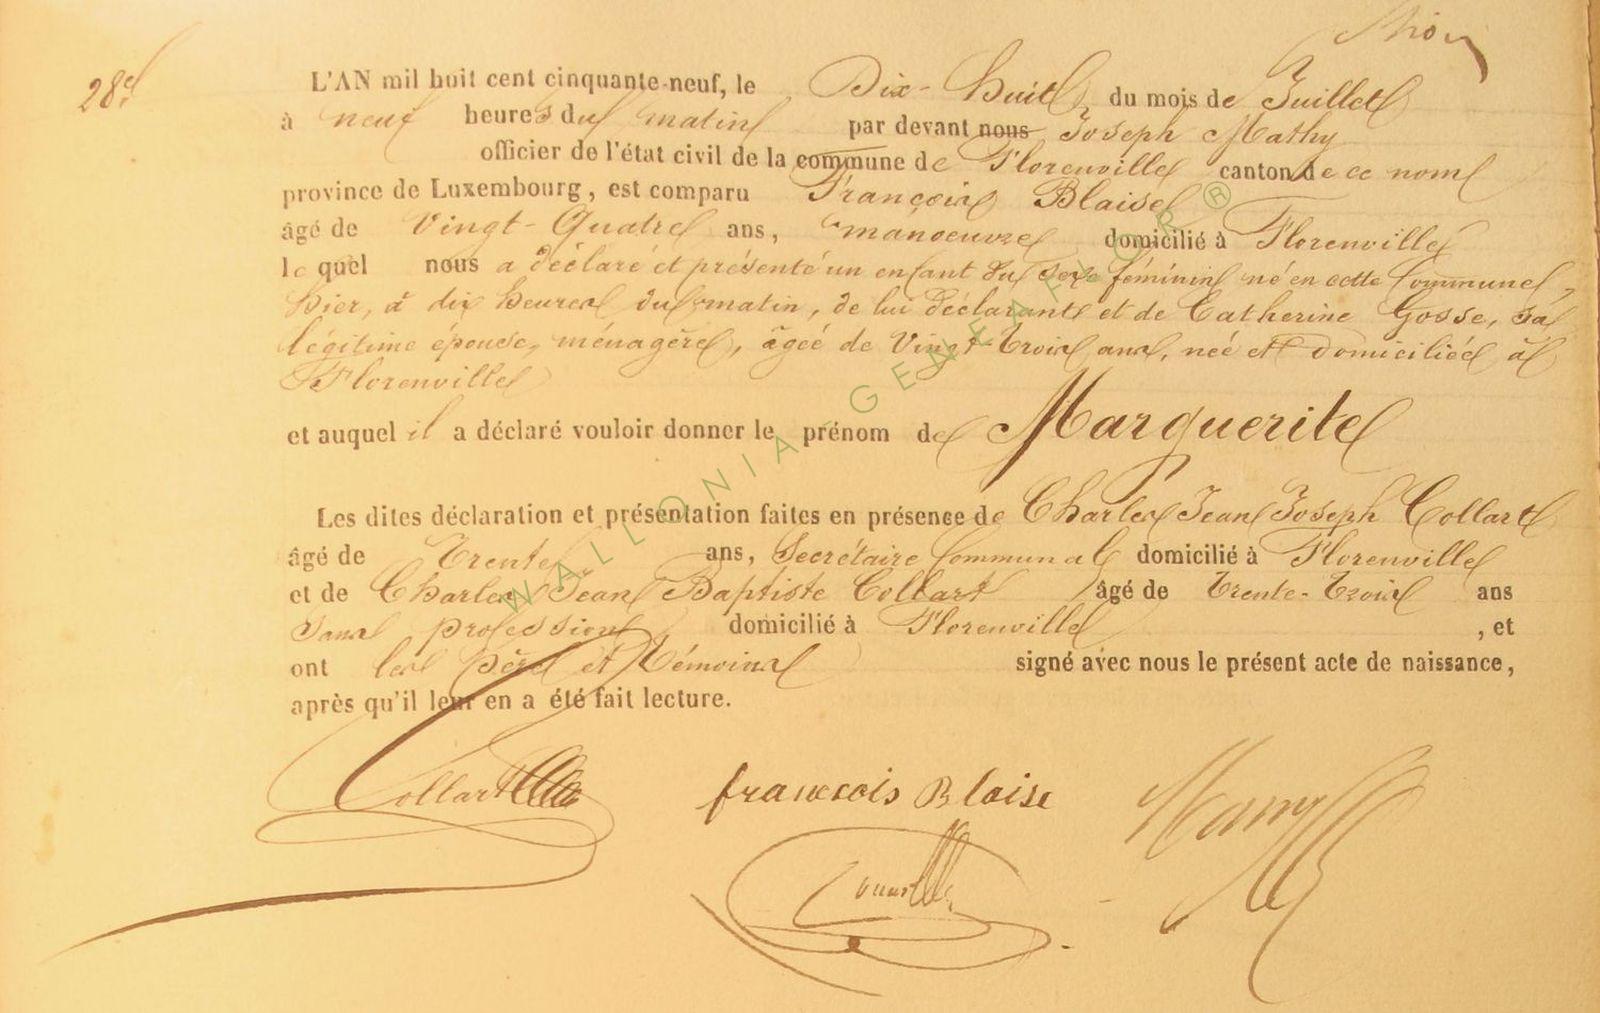 28e
L'AN mil huit cent cinquante-neuf, le Dix-huit du mois de Juillet
à neuf heures du matin par devant nous Joseph Mathy
officier de l'état civil de la commune de Florenville canton de ce nom
province de Luxembourg, est comparu François Blaise
âgé de Vingt-Quatre ans, manoeuvre domicilié à Florenville
le quel nous a déclaré et présenté un enfant du sexe féminin né en cette Commune,
hier, à dix heures du matin, de lui déclarant et de Catherine Gosse, sa
légitime épouse, ménagère, âgée de Vingt-trois ans, née et domiciliée à
Florenville
et auquel il a déclaré vouloir donner le prénom de Marguerite
Les dites déclaration et présentation faites en présence de Charles Jean Joseph Collart
âgé de Trente ans, Secrétaire Communal domicilié à Florenville
et de Charles Jean Baptiste Collart âgé de Trente-Trois ans
sans profession domicilié à Florenville, et
ont les père et témoins signé avec nous le présent acte de naissance,
après qu'il leur en a été fait lecture.
Collart francois Blaise
WALLONIA-GENEAFLOR ®